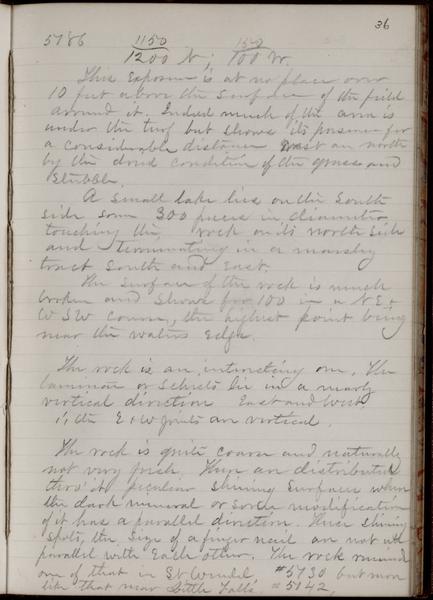 36
5786 1150 / 1200 N; 150 / 100 W.
This Exposure is at no place over
10 feet above the surface of the field
around it. Indeed much of the area is
under the turf but shows its presence for
a considerable distance east an north
by the dried condition of the grass and
Stubble.
A small lake lies on the South
side some 300 paces in diameter,
touching the rock on its north side
and terminating in a marshy
tract South and East.
The surface of the rock is much
broken and shows for 100 in a N E &
W S W course, the highest point being
near the waters Edge.
The rock is an interesting one. The
laminae or Schists lie in a nearly
vertical direction East and West
i, the E & W joints are vertical.
The rock is quite coarse and naturally
not very fresh. There are distributed
thro' it peculiar shining surfaces where
the dark mineral or some modification
of it has a parallel direction. These shining
spots, the size of a finger nail are not all
parallel with Each other. The rock reminds
one of that in St Wendel #5130 but more
like that near Little Falls #5142,